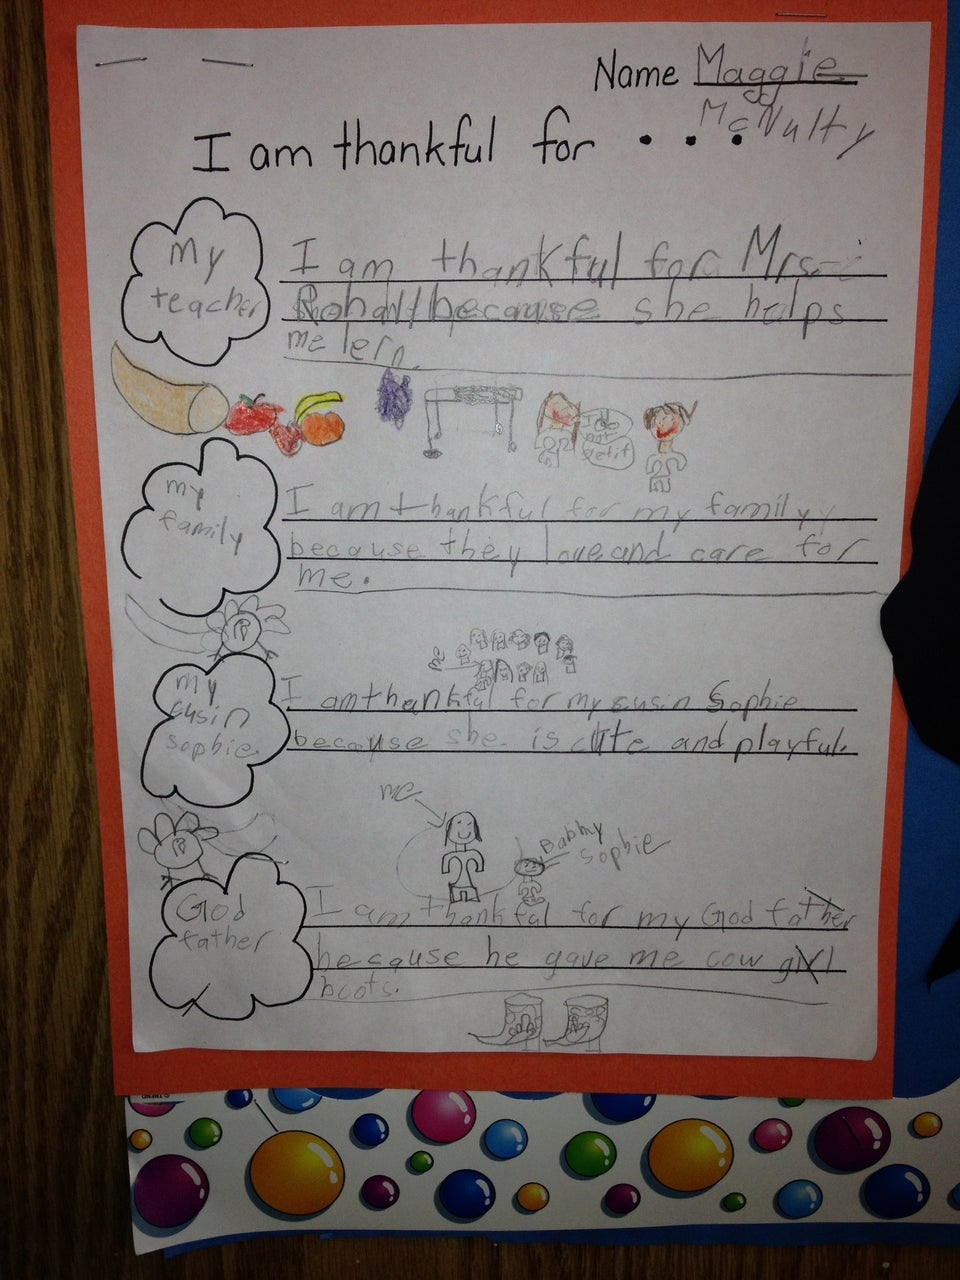 Name Maggie
McNulty
I am thankful for . . .
My
teacher
I am thankful for Mrs.
because she helps
me lern.
my
family
I am thankful for my family
because they love and care for
me.
my
cusin
sophie.
I am thankful for my cusin Sophie
because she is cute and playful.
me
Babby
Sophie
God
father
I am thankful for my God father
because he gave me cow girl
boots.